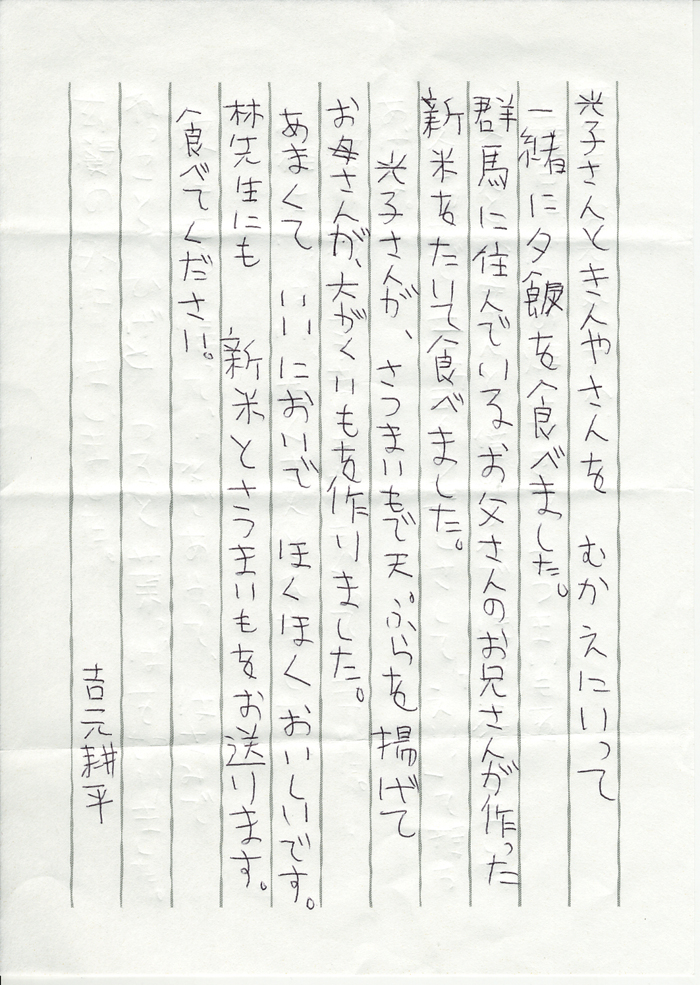 光子さんときんやさんを　むかえにいって
一緒に夕飯を食べました。
群馬に住んでいるお父さんのお兄さんが作った
新米をたいて食べました。
光子さんが、さつまいもで天ぷらを揚げて
お母さんが、大がくいもを作りました。
あまくて　いいにおいで　ほくほく　おいしいです。
林先生にも　新米とさつまいもをお送ります。
食べてください。
吉元耕平